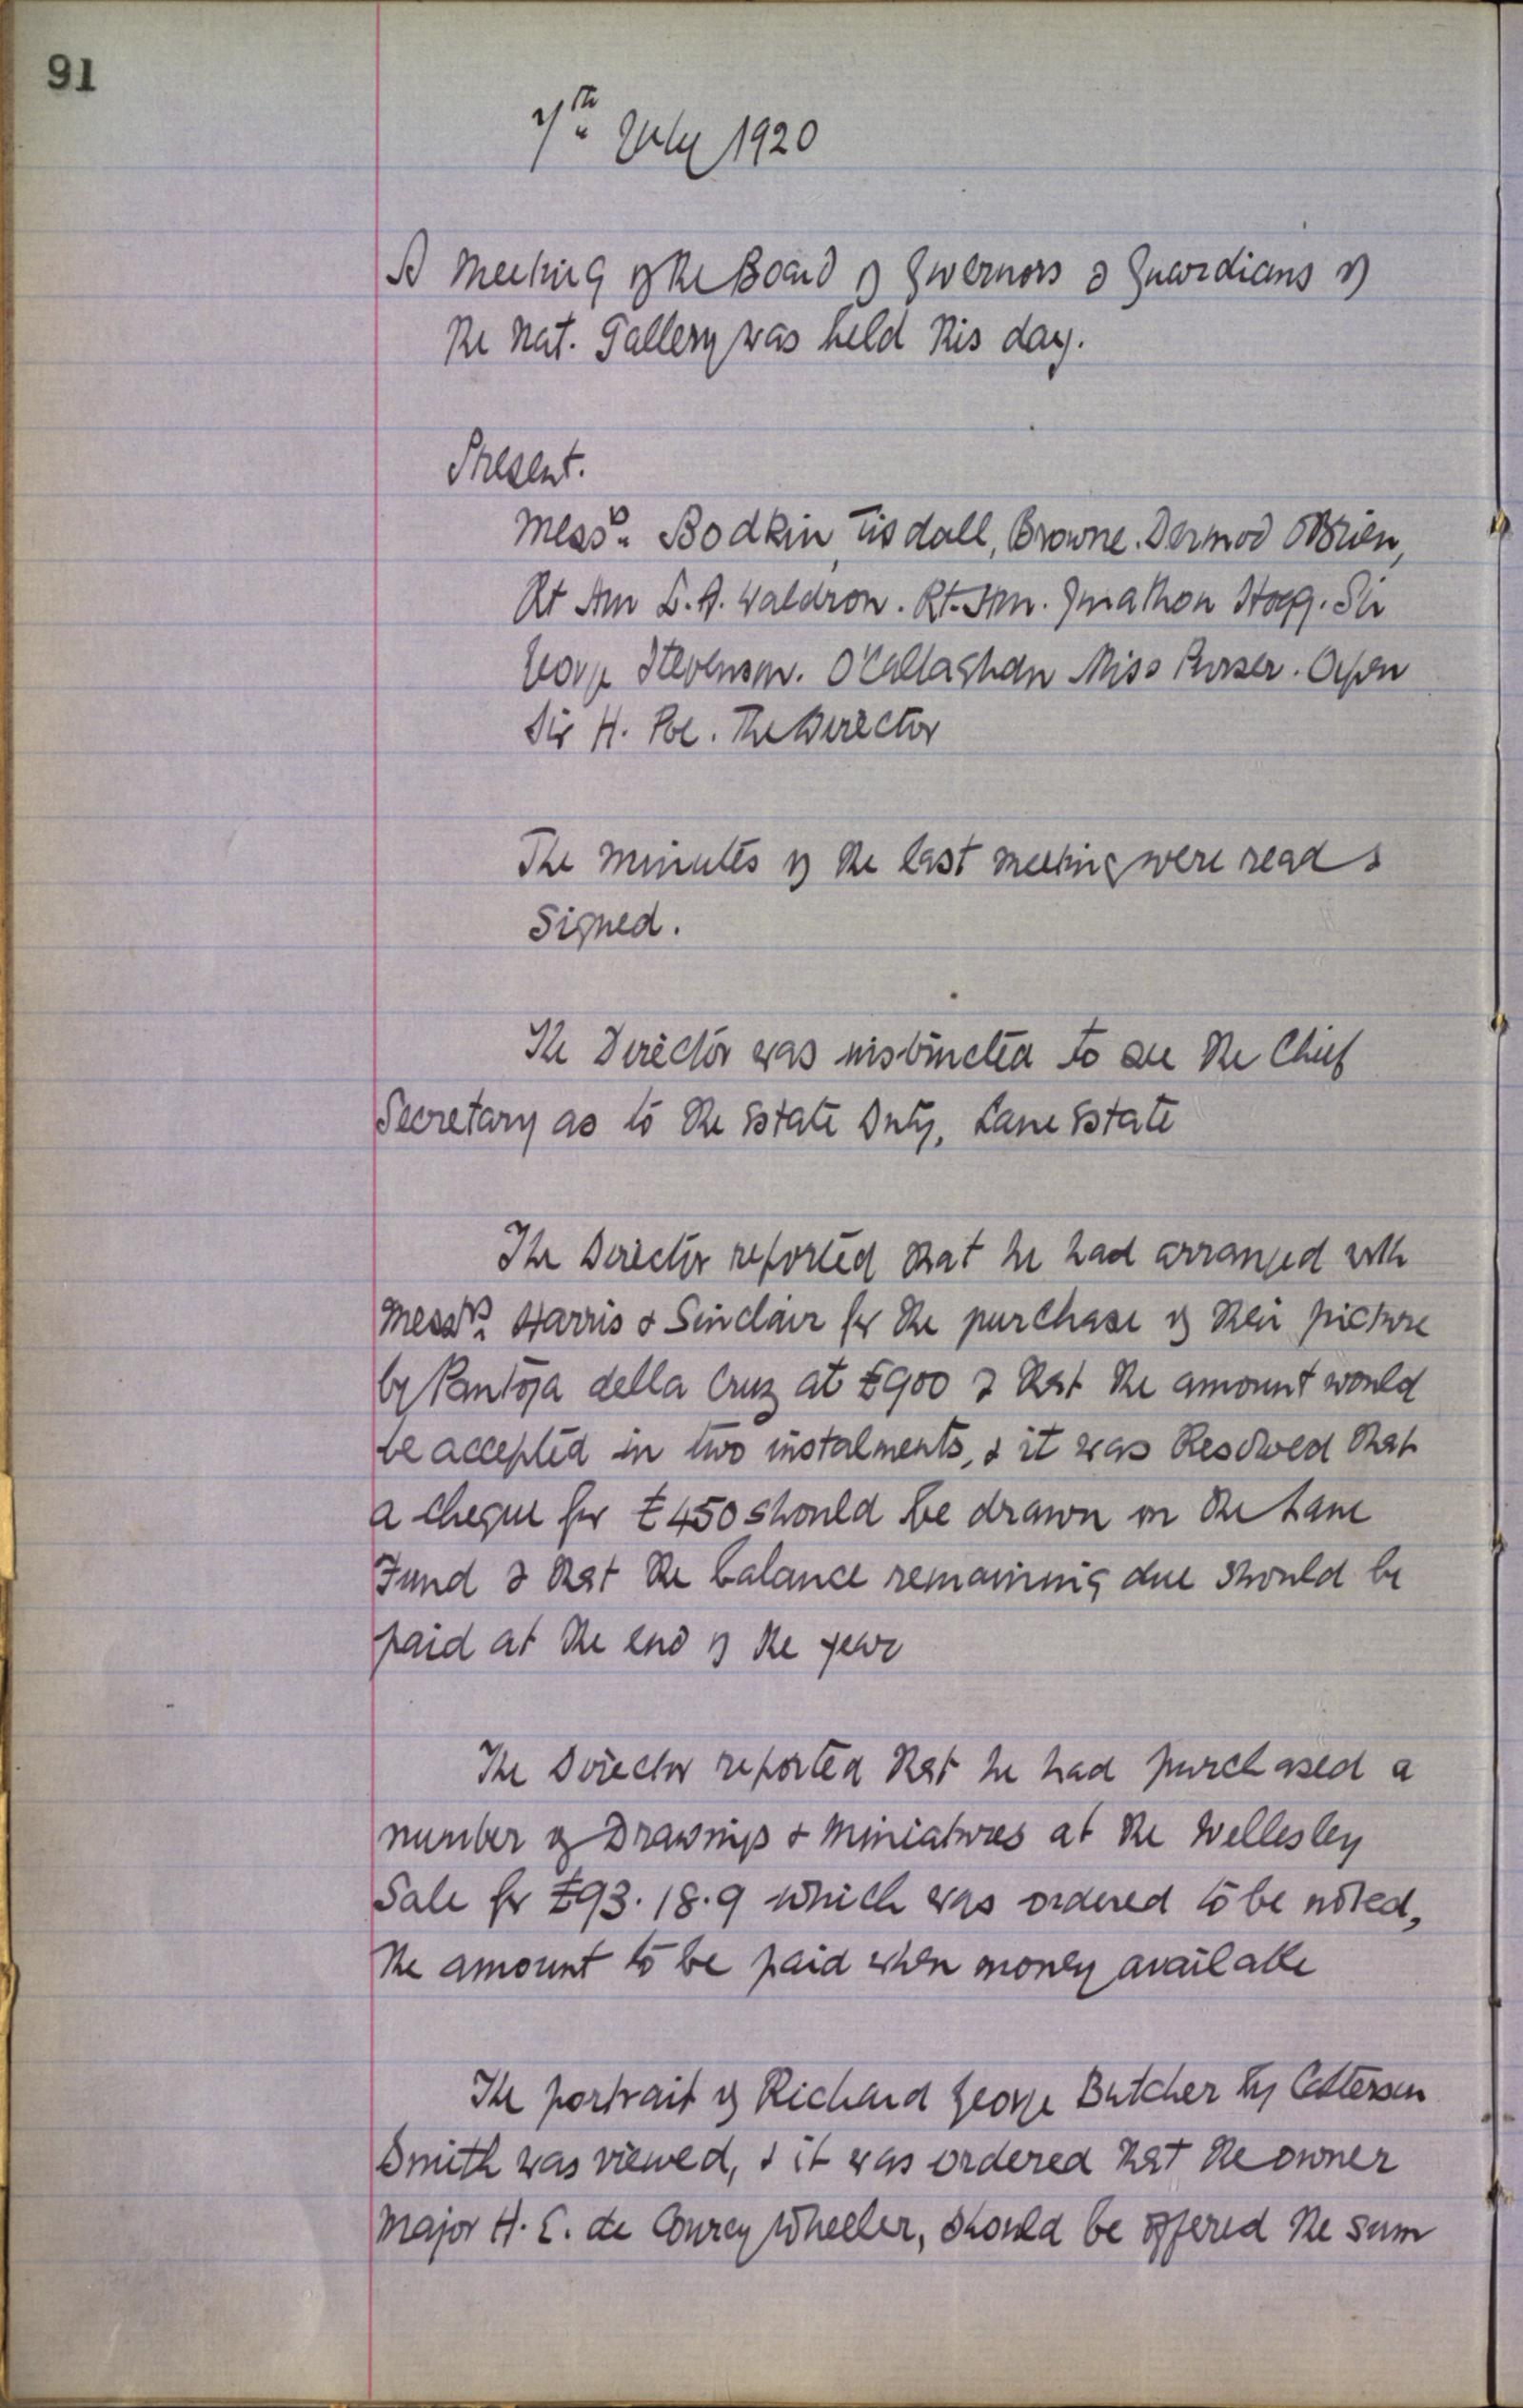 91
7th July 1920
A meeting of the Board of Governors & Guardians of
the Nat. Gallery was held this day.
Present.
Messrs. Bodkin, Tisdall, Browne. Dermod O'Brien,
Rt Hon L. A. Waldron. Rt. Hon. Jonathon Hogg. Sir
George Stevenson. O'Callaghan Miss Purser. Orpen
Sir H. Poe. The Director
The minutes of the last meeting were read &
signed.
The Director was instructed to see the Chief
Secretary as to the Estate Duty, Lane Estate
The Director reported that he had arranged with
Messrs. Harris & Sinclair for the purchase of their picture
by Pantoja della Cruz at £900 & that the amount would
be accepted in two instalments, & it was Resolved that
a cheque for £450 should be drawn on the Lane
Fund & that the balance remaining due should be
paid at the end of the year
The Director reported that he had purchased a
number of Drawings & Miniatures at the Wellesley
Sale for £93.18.9 which was ordered to be noted,
the amount to be paid when money available
The portrait of Richard George Butcher by Catterson
Smith was viewed, & it was ordered that the owner
Major H. E. de Courcy Wheeler, should be offered the sum